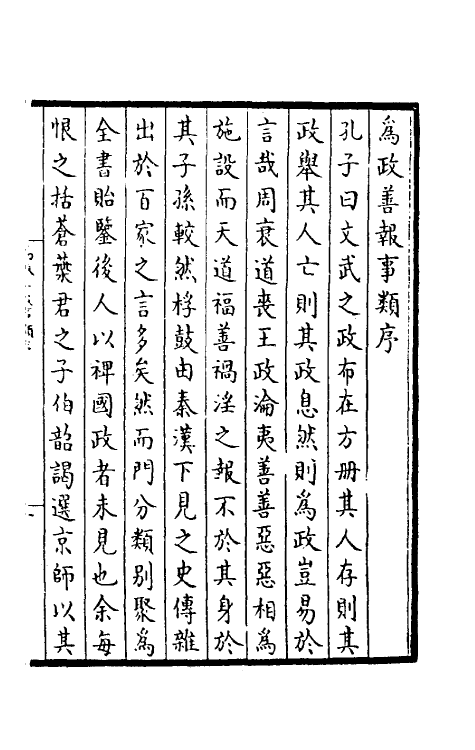 爲政善報事類序
孔子曰文武之政布在方册其人存則其
政舉其人亡則其政息然則爲政豈易於
言哉周衰道喪王政淪夷善善惡惡相爲
施設而天道福善禍淫之報不於其身於
其子孫較然桴鼓由秦漢下見之史傳雜
出於百家之言多矣然而門分類别聚爲
全書貽鑒後人以裨國政者未見也余每
恨之括蒼葉君之子伯韶謁選京師以其